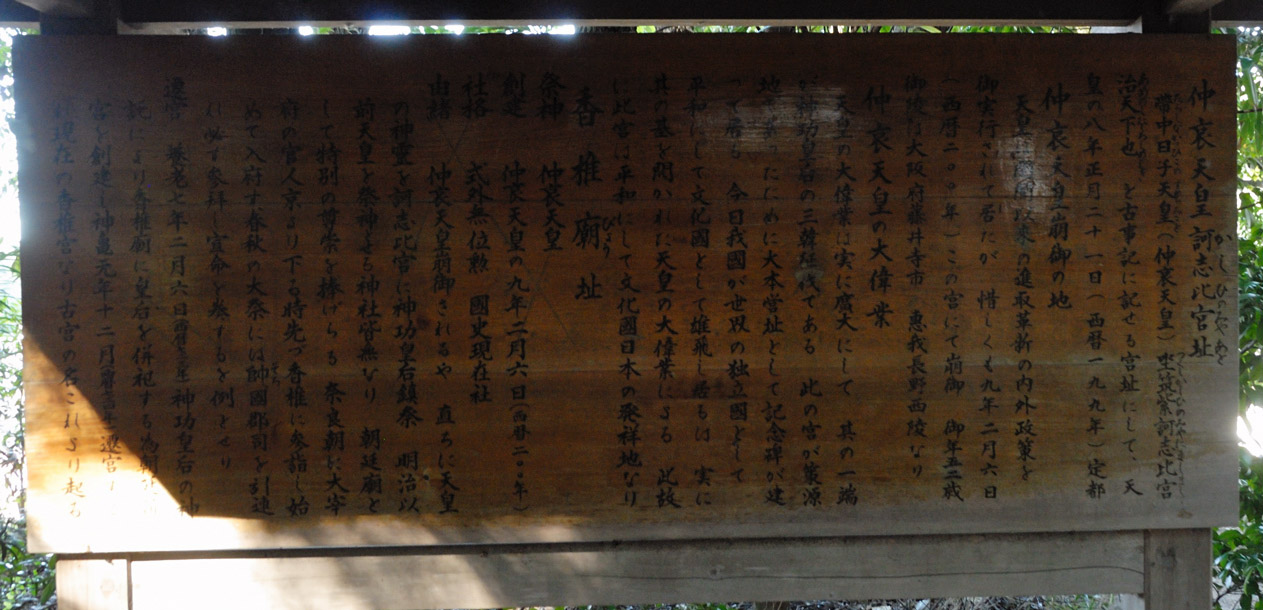 仲哀天皇訶志比宮址
帯中日子天皇(仲哀天皇)坐筑紫訶志比宮
治天下也 と古事記に記せる宮址にして、天
皇の八年正月二十一日(西暦一九九年)定都
仲哀天皇崩御の地
天皇 の進取革新の内外政策を
御実行されて居たが 惜しくも九年二月六日
(西暦二〇〇年)この宮にて崩御 御年五二歳
御陵は大阪府藤井寺市 恵我長野西陵なり
仲哀天皇の大偉業
天皇の大偉業は実に広大にして 其の一端
が神功皇后の三韓征伐である 此の宮が策源
地 ために大本営址として記念碑が建
つて居る 今日我國が世界の独立國として
平和にして文化國として雄飛し居るは 実に
其の基を開かれた天皇の大偉業による 此故
に此宮は平和にして文化國日本の発祥地なり
香椎廟址
祭神 仲哀天皇
創建 仲哀天皇の九年二月六日(西暦二〇〇年)
社格 式外無位勲 國史現在社
由緒 仲哀天皇崩御されるや 直ちに天皇
の神霊を訶志比宮に神功皇后鎮祭 明治以
前天皇を祭神とする神社皆無なり 朝廷廟と
して特別の尊崇を捧げらる 奈良朝に大宰
府の官人京より下る時先づ香椎に参詣し始
めて入府す春秋の大祭には帥國郡司を引連
れ必ず参拝し宣命を奉たるを例とせり
遷宮 養老七年二月六日 神功皇后の神
託により香椎廟に皇后を併祀する為
宮を創建し神亀元年十二月 遷宮
現在の香椎宮なり古宮の名これより起る